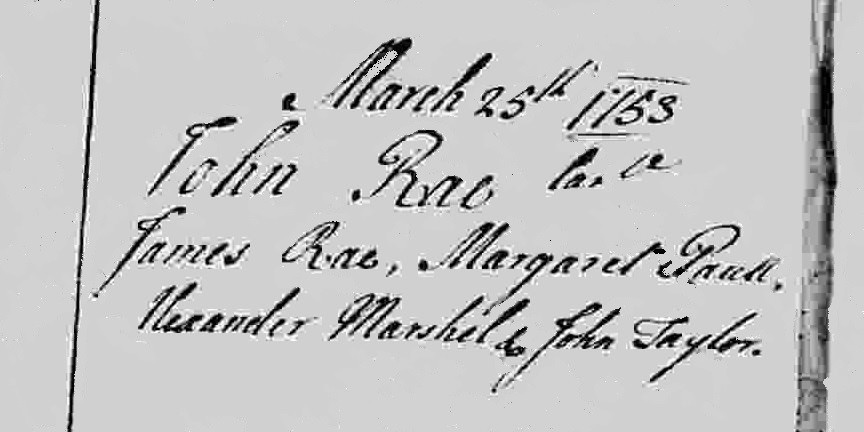 March 25th 1753
John Rae la:ll
James Rae, Margaret Paull,
Alexander Marshel & John Taylor.